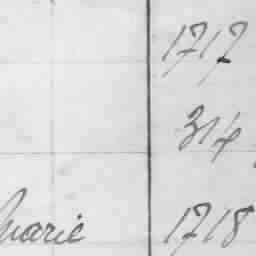 1717
314
Marie 1718